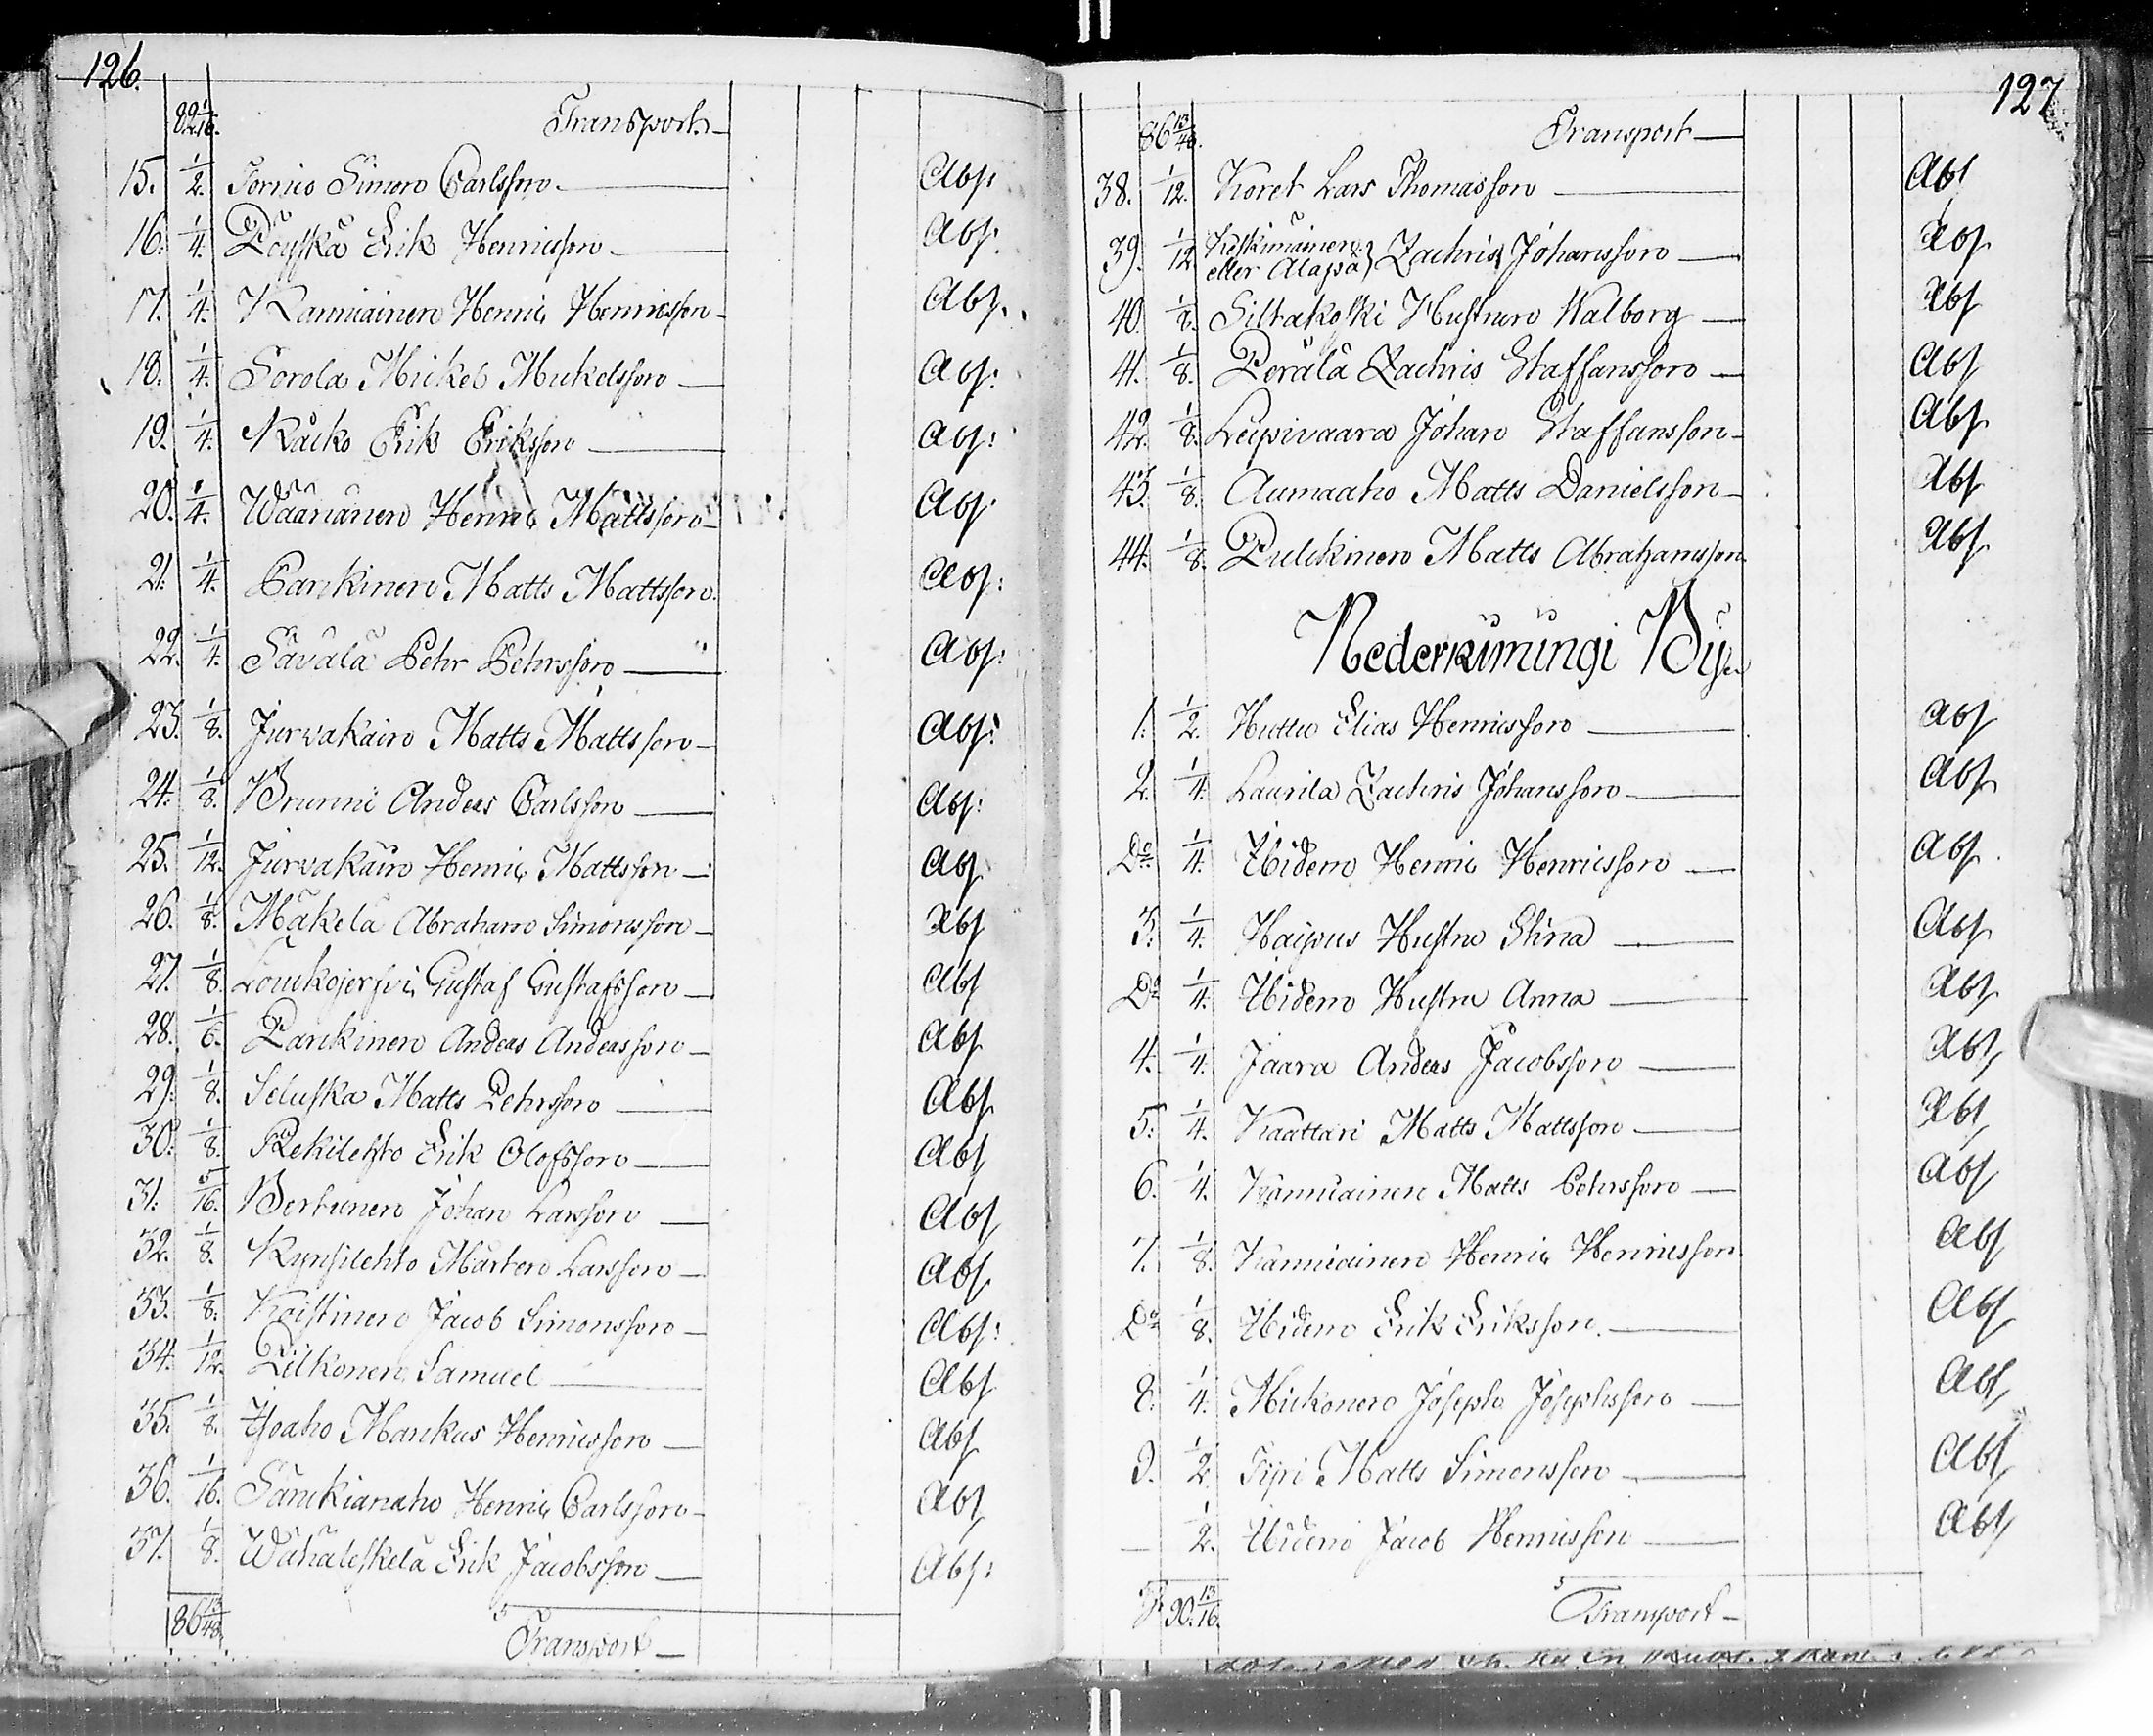 126.
Transport
15. 1/2. Tornio Simon Carlsson Abs:
16. 1/4. Pöyskä Erik Henricsson Abs:
17. 1/4. Kanniainen Henric Henricsson Abs:
18. 1/4. Sorola Mickel Mickelsson Abs:
19. 1/4. Räcko Erik Eriksson Abs:
20. 1/4. Wäänänen Henric Mattsson Abs:
21. 1/4. Pankinen Matts Mattsson Abs:
22. 1/4. Sävälä Pehr Pehrsson Abs:
23. 1/8. Jurvakain Matts Mattsson Abs:
24. 1/8. Brunni Anders Carlsson Abs:
25. 1/12. Jurvakain Henric Mattsson Abs
26. 1/8. Mäkelä Abraham Simonsson Abs
27. 1/8. Gustaf Gustafsson Abs
28. 1/6. Pankinen Anders Andersson Abs
29. 1/8. Seluska Matts Pehrsson Abs
30. 1/8. Rekilehto Erik Olofsson Abs
31. 5/16. Bertunen Johan Larsson Abs
32. 1/8. Kynsilehto Mårten Larsson Abs
33. 1/8. Koistinen Jacob Simonsson Abs:
34. 1/12. Pilkonen Samuel Abs
35. 1/8. Ysoaho Markus Henricsson Abs
36. 1/16. Sänckianaho Henric Carlsson Abs
37. 1/8. Wähäleskelä Erik Jacobsson Abs:
86 13/48
Transport
127
86 13/48. Transport
38. 1/12. Koret Lars Thomasson Abs
39. 1/12. Keskinäinen eller Alapää} Zachris Johansson Abs
40. 1/8. Siltakoski Hustrun Walborg Abs
41. 1/8. Perälä Zachris Staffansson Abs
42. 1/8. Leipivaara Johan Staffansson Abs
43. 1/8. Aumaaho Matts Danielsson Abs
44. 1/8. Pulckinen Matts Abrahamsson Abs
Nederkimingi By
1. 1/2. Huttu Elias Henricsson Abs
2. 1/4. Laurila Zachris Johansson Abs
Do 1/4. Ibidem Henric Henricsson Abs
3. 1/4. Haipus Hustru Stina Abs
Do 1/4. Ibidem Hustru Anna Abs
4. 1/4. Jaara Anders Jacobsson Abs
5. 1/4. Kaattari Matts Mattsson Abs
6. 1/4. Kanniainen Matts Pehrsson Abs
7. 1/8. Kanniainen Henric Henricsson Abs
Do 1/8. Ibidem Erik Eriksson Abs
8. 1/4. Mickonen Joseph Josephsson Abs
9. 1/2 Tipi Matts Simonsson Abs
— 1/2. Ibidem Jacob Henricsson Abs
90 13/16. Transport